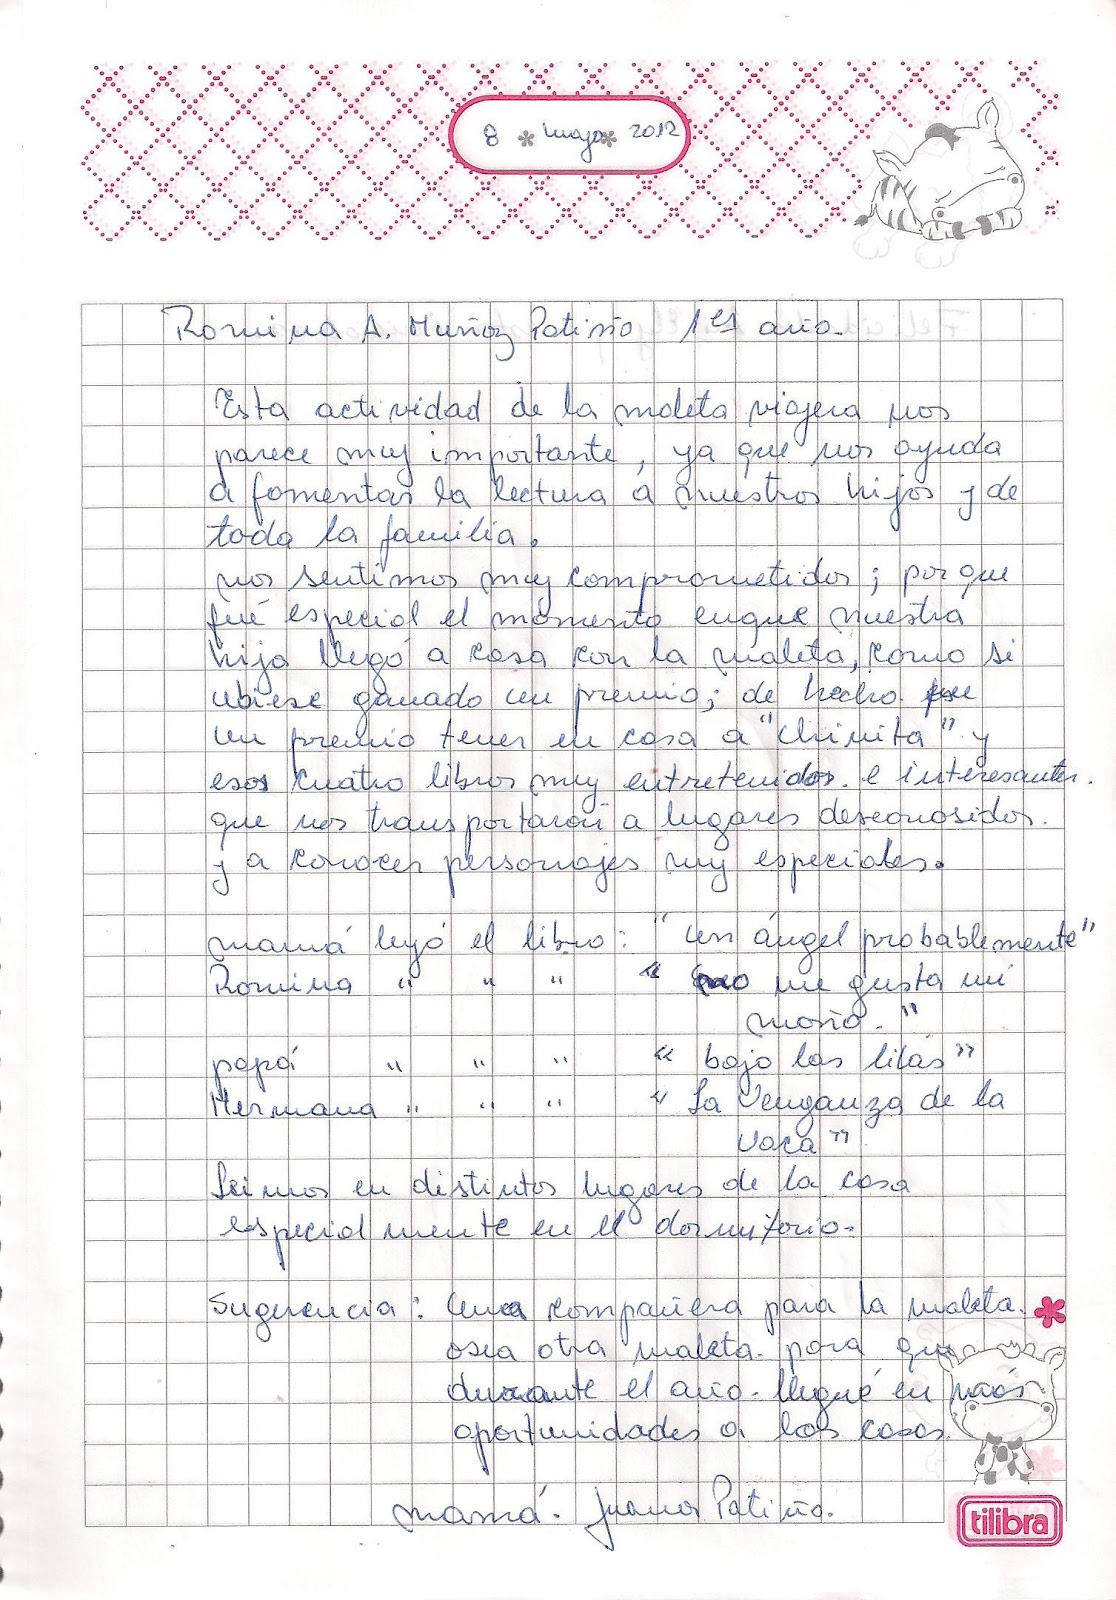 8 mayo 2012
Romina A. Muñoz Patiño 1er año.
Esta actividad de la maleta viajera nos
parece muy importante, ya que nos ayuda
a fomentar la lectura a nuestros hijos y de
toda la familia.
nos sentimos muy comprometidos; por que
fué especial el momento enque nuestra
hija llegó a casa con la maleta, como si
ubiese ganado un premio; de hecho fue
un premio tener en casa a "Chinita" y
esos cuatro libros muy entretenidos e interesantes.
que nos transportaron a lugares desconosidos.
y a conocer personajes muy especiales.
mamá leyó el libro: "Un ángel probablemente"
Romina " " " " no me gusta mi
moño."
papá " " " "bajo las lilas"
Hermana " " " "La Venganza de la
vaca".
Leimos en distintos lugares de la casa
especialmente en el dormitorio.
Sugerencia: Una compañera para la maleta.
osea otra maleta para que
durante el año llegué en más
oportunidades a las casas.
mamá. Juana Patiño.
tilibra